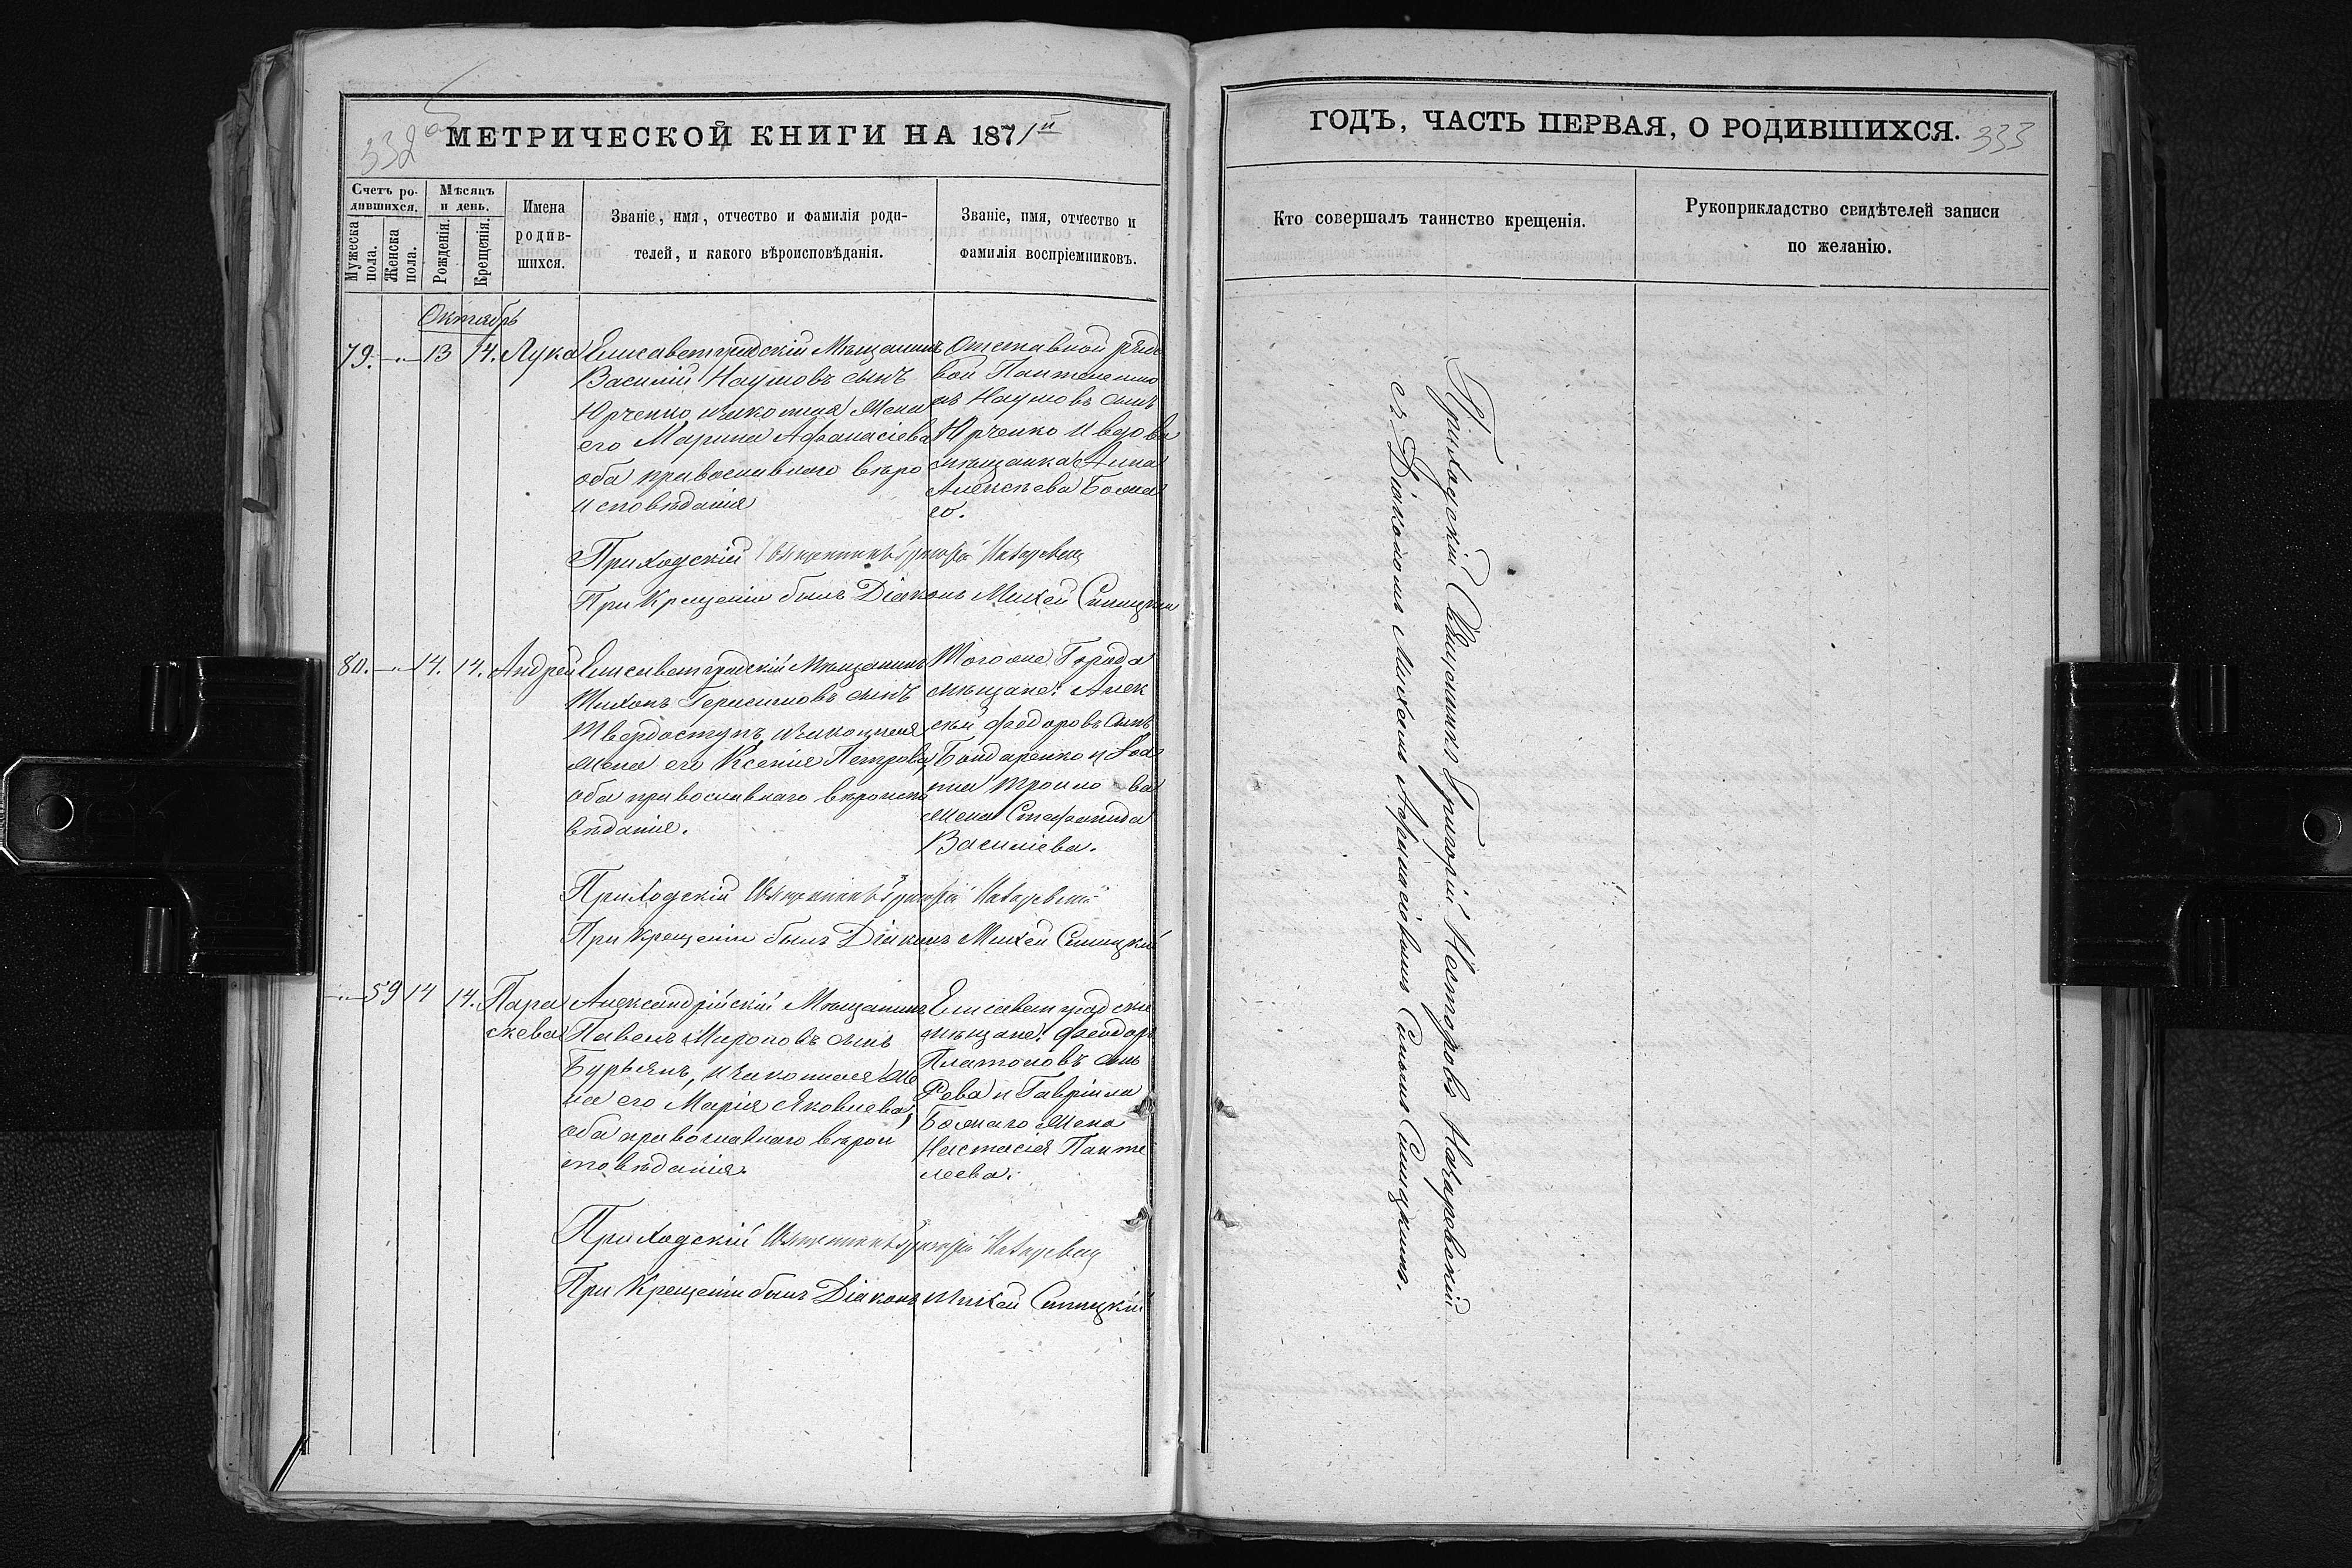 332 об
МЕТРИЧЕСКОЙ КНИГИ НА 1871й
Счетъ ро-
дившихся.
Мѣсяцъ
и день.
Мужеска
пола.
Женска
пола.
Рожденія.
Крещенія.
Имена
родив-
шихся.
Званіе, имя, отчество и фамилія роди-
телей, и какого вѣроисповѣданія.
Званіе, имя, отчество и
фамилія воспріемниковъ.
Октябрь
79. —„— 13 14. Лука
Елисаветградскій Мѣщанинъ
Василій Наумовъ сынъ
Юрченко и законная Жена
его Марина Афанасіева
оба православнаго вѣро
исповѣданія
Отставной рядо
вой Пантелеимо
нъ Наумовъ сынъ
Юрченко и вдова
мѣщанка Анна
Алексѣева Божа
го.
Приходскій Священникъ Григорій
При Крещеніи былъ Діаконъ Михей Синицкій
80. —„— 14. 14. Андрей
Елисаветградскій Мѣщанинъ
Тихонъ Герасимовъ сынъ
Твердоступъ, и законная
жена его Ксенія Петрова,
оба православнаго вѣроиспо
вѣданія.
Того же Города
мѣщане: Алек
сѣй Федоровъ сынъ
Бондаренко и
жена Стефанида
Василіева.
Приходскій Священникъ Григорій
При крещеніи былъ Діаконъ Михей Синицкій
—„— 59 14 14. Пара
скева
Александрійскій Мѣщанинъ
Павелъ Мироновъ сынъ
Бурьянъ, и законная Же
на его Марія Яковлева,
оба православнаго вѣрои
сповѣданія.
Елисаветградскіе
мѣщане: Феодоръ
Платоновъ сынъ
Рева и Гавріила
Божаго жена
Настасія Панте
леева.
Приходскій Священникъ Григорій
При Крещеніи былъ Діаконъ Михей Синицкій
ГОДЪ, ЧАСТЬ ПЕРВАЯ, О РОДИВШИХСЯ.
333
Кто совершалъ таинство крещенія.
Рукоприкладство свидѣтелей записи
по желанію.
Приходскій Священникъ Григорій Несторовъ
съ Діакономъ Михеемъ Афанасіевымъ Сыномъ Синицкимъ.